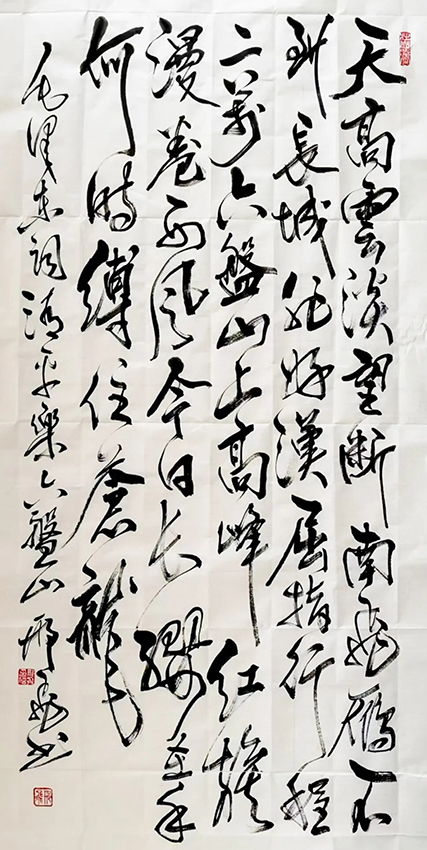 天高雲淡望断南飛雁不
到長城非好漢屈指行程
二萬六盤山上高峰红旗
漫卷西风今日长缨在手
何時縛住蒼龍
毛泽东詞清平樂六盤山邢飛书